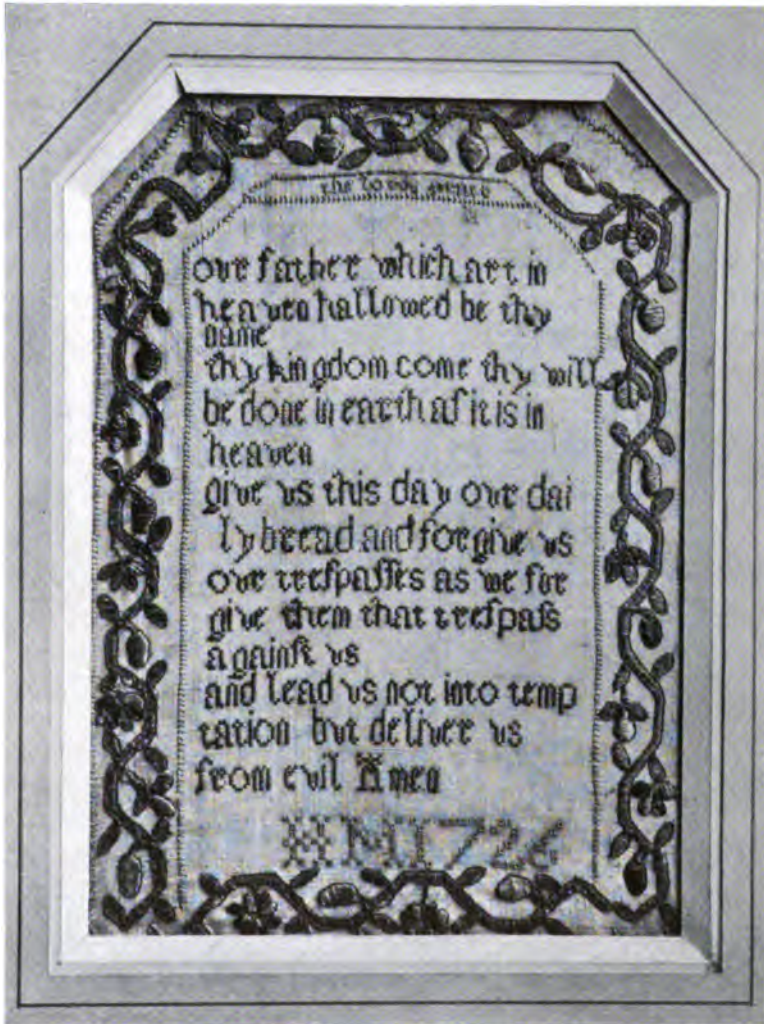 the lords
our father which art in
heaven hallowed be thy
name
thy kingdom come thy will
be done in earth aſ it is in
heaven
give vs this day our dai
ly bread and forgive vs
our treſpaſſes as we for
give them that treſpaſs
againſt vs
and lead vs not into temp
tation but deliver vs
from evil Amen
HM 1726